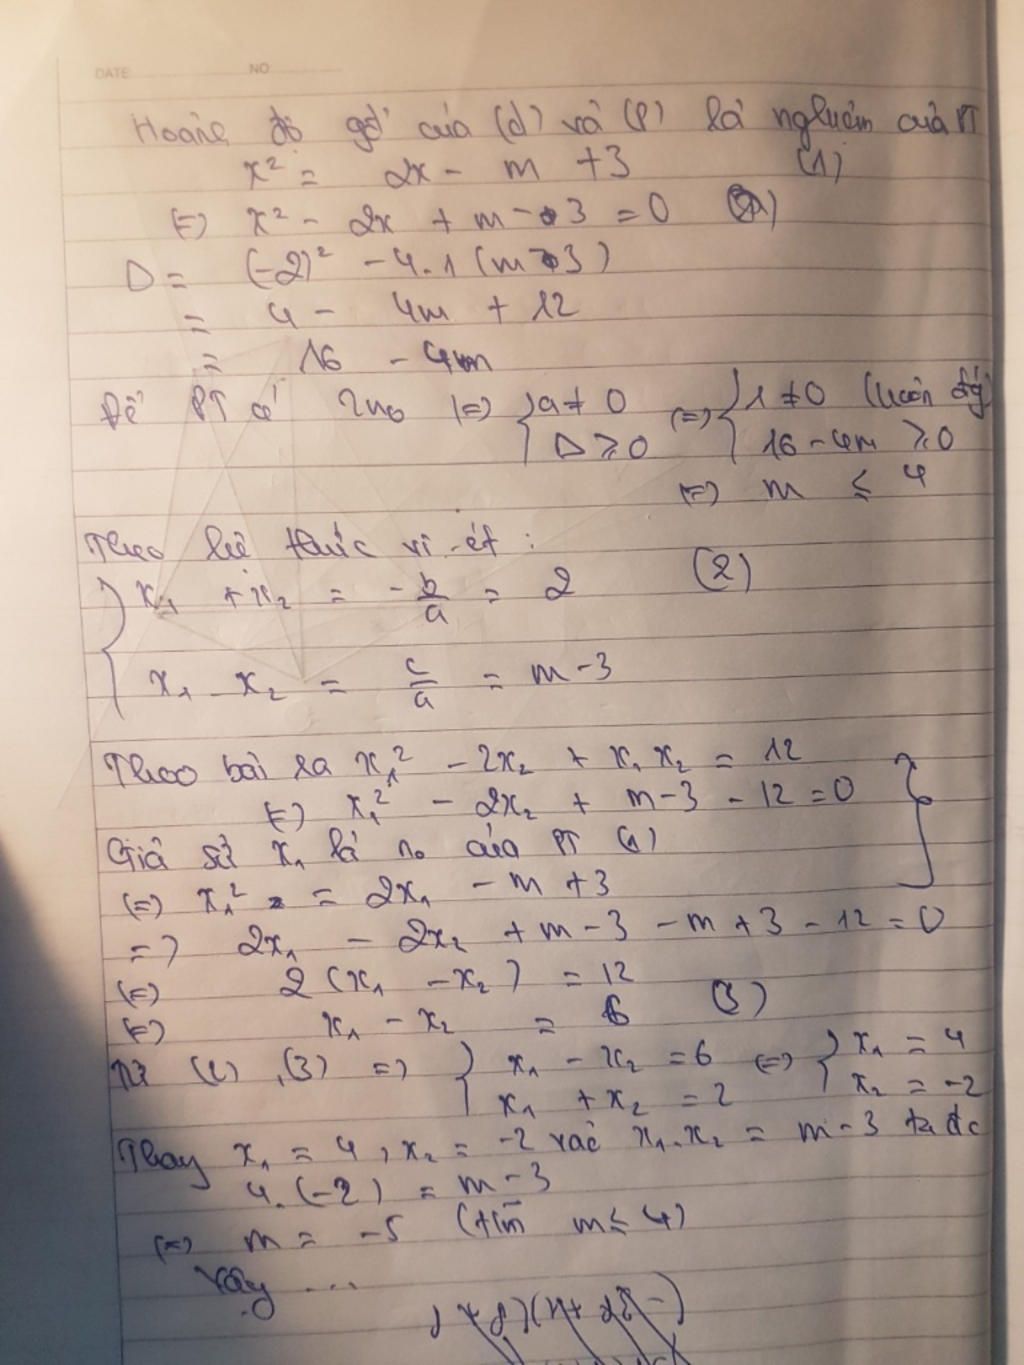 DATE NO
Hoành độ gđ của (d) và (P) là nghiệm của PT
x² = 2x - m + 3 (1)
(=) x² - 2x + m - 3 = 0
Δ = (-2)² - 4.1 (m - 3)
= 4 - 4m + 12
= 16 - 4m
Để PT có 2 no (=) { a ≠ 0 (=) { 1 ≠ 0 (luôn đg)
Δ ≥ 0 16 - 4m ≥ 0
(=) m ≤ 4
Theo hệ thức vi-ét :
{ x₁ + x₂ = -b/a = 2 (2)
x₁ . x₂ = c/a = m - 3
Theo bài ra x₁² - 2x₂ + x₁ x₂ = 12
(=) x₁² - 2x₂ + m - 3 - 12 = 0
Giả sử x₁ là no của PT (1)
(=) x₁² = 2x₁ - m + 3
=) 2x₁ - 2x₂ + m - 3 - m + 3 - 12 = 0
(=) 2 (x₁ - x₂) = 12
(=) x₁ - x₂ = 6 (3)
Từ (2), (3) =) { x₁ - x₂ = 6 (=) { x₁ = 4
x₁ + x₂ = 2 x₂ = -2
Thay x₁ = 4, x₂ = -2 vào x₁.x₂ = m - 3 ta đc
4.(-2) = m - 3
(=) m = -5 (t/m m ≤ 4)
Vậy ...